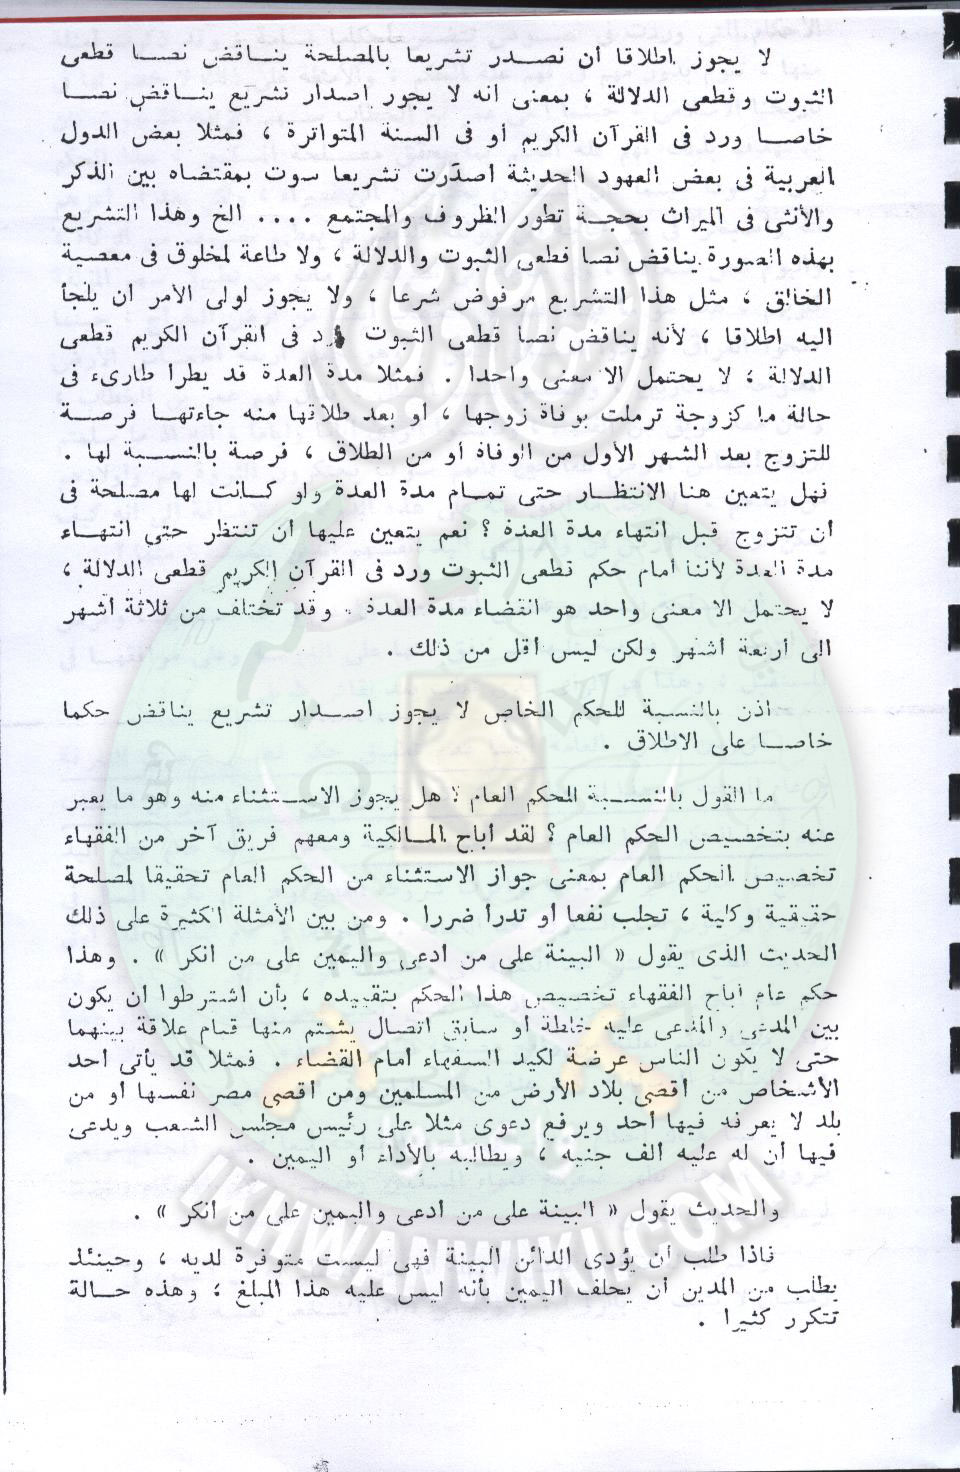 لا يجوز اطلاقا أن نصدر تشريعا بالمصلحة يناقض نصا قطعى
الثبوت وقطعى الدلالة ، بمعنى انه لا يجوز اصدار تشريع يناقض نصا
خاصا ورد فى القرآن الكريم أو فى السنة المتواترة ، فمثلا بعض الدول
العربية فى بعض العهود الحديثة أصدرت تشريعا سوت بمقتضاه بين الذكر
والأنثى فى الميراث بحجة تطور الظروف والمجتمع .... الخ وهذا التشريع
بهذه الصورة يناقض نصا قطعى الثبوت والدلالة ، ولا طاعة لمخلوق فى معصية
الخالق ، مثل هذا التشريع مرفوض شرعا ، ولا يجوز لولى الأمر أن يلجأ
اليه اطلاقا ، لأنه يناقض نصا قطعى الثبوت ورد فى القرآن الكريم قطعى
الدلالة ، لا يحتمل الا معنى واحدا . فمثلا مدة العدة قد يطرا طارىء فى
حالة ما كزوجة ترملت بوفاة زوجها ، أو بعد طلاقها منه جاءتها فرصة
للتزوج بعد الشهر الأول من الوفاة أو من الطلاق ، فرصة بالنسبة لها .
فهل يتعين هنا الانتظار حتى تمام مدة العدة ولو كانت لها مصلحة فى
أن تتزوج قبل انتهاء مدة العدة ؟ نعم يتعين عليها أن تنتظر حتى انتهاء
مدة العدة لأننا أمام حكم قطعى الثبوت ورد فى القرآن الكريم قطعى الدلالة ،
لا يحتمل الا معنى واحد هو انقضاء مدة العدة . وقد تختلف من ثلاثة أشهر
الى أربعة أشهر ولكن ليس أقل من ذلك .
اذن بالنسبة للحكم الخاص لا يجوز اصدار تشريع يناقض حكما
خاصا على الاطلاق .
ما القول بالنسبة للحكم العام ؟ هل يجوز الاستثناء منه وهو ما يعبر
عنه بتخصيص الحكم العام ؟ لقد أباح المالكية ومعهم فريق آخر من الفقهاء
تخصيص الحكم العام بمعنى جواز الاستثناء من الحكم العام تحقيقا لمصلحة
حقيقية وكلية ، تجلب نفعا أو تدرأ ضررا . ومن بين الأمثلة الكثيرة على ذلك
الحديث الذى يقول « البينة على من أدعى واليمين على من انكر » . وهذا
حكم عام أباح الفقهاء تخصيص هذا الحكم بتقييده ، بأن اشترطوا أن يكون
بين المدعى والمدعى عليه خلطة أو سابق اتصال يشتم منها قيام علاقة بينهما
حتى لا يكون الناس عرضة لكيد السفهاء أمام القضاء . فمثلا قد يأتى أحد
الأشخاص من أقصى بلاد الأرض من المسلمين ومن أقصى مصر نفسها أو من
بلد لا يعرفه فيها أحد ويرفع دعوى مثلا على رئيس مجلس الشعب ويدعى
فيها أن له عليه ألف جنيه ، ويطالبه بالأداء أو اليمين .
والحديث يقول « البينة على من أدعى واليمين على من أنكر » .
فاذا طلب أن يؤدى الدائن البينة فهى ليست متوفرة لديه ، وحينئذ
يطلب من المدين أن يحلف اليمين بأنه ليس عليه هذا المبلغ ؛ وهذه حالة
تتكرر كثيرا .
IKHWANWIKI.COM